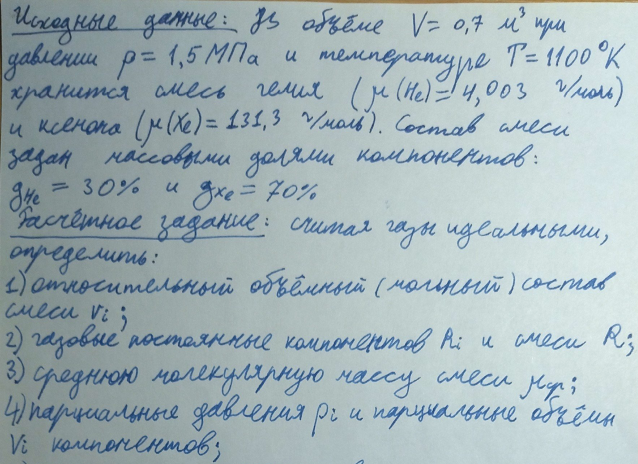 Исходные данные: В объёме V = 0,7 м³ при
давлении p = 1,5 МПа и температуре T = 1100 °K
хранится смесь гелия (μ(He) = 4,003 г/моль)
и ксенона (μ(Xe) = 131,3 г/моль). Состав смеси
задан массовыми долями компонентов:
gHe = 30% и gXe = 70%
Расчётное задание: считая газы идеальными,
определить:
1) относительный объёмный (мольный) состав
смеси vi;
2) газовые постоянные компонентов Ri и смеси Ri;
3) среднюю молекулярную массу смеси μср;
4) парциальные давления pi и парциальные объёмы
Vi компонентов;